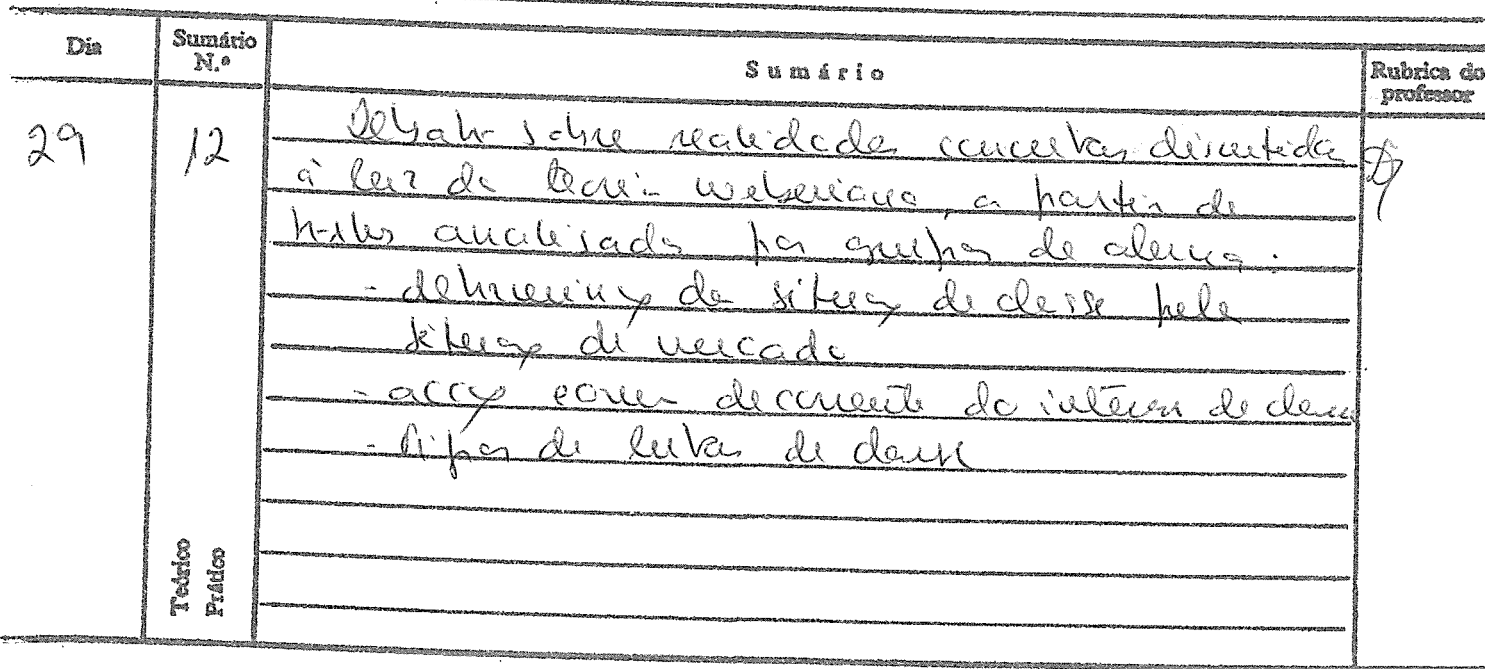 Dia
Sumário N.º
Sumário
Rubrica do professor
29
12
Debate sobre realidades concretas discutidas
à luz da teoria weberiana, a partir de
textos analisados por grupos de alunos:
- determinação da situação de classe pela
situação de mercado
- acção comum decorrente do interesse de classe
- tipos de lutas de classe
Teórico
Prático